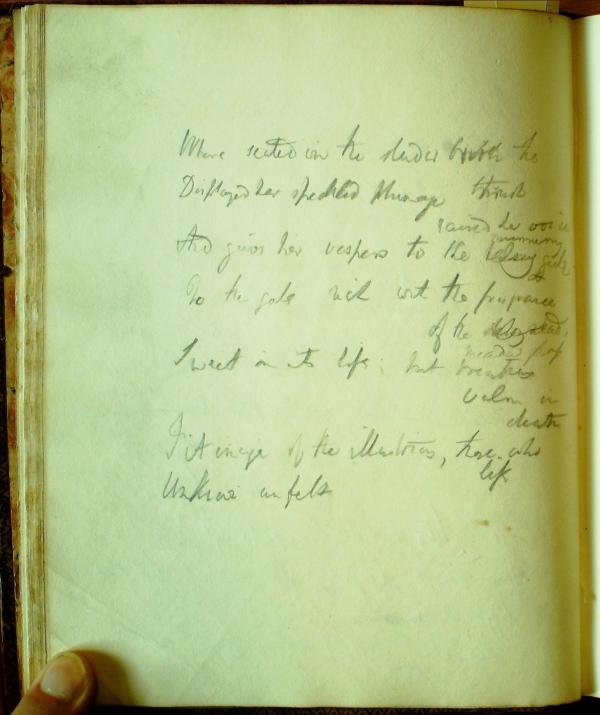 Where seated on the slender the
Displayed her speckled plumage thrush
raised her voice
And gives her vespers to the
To the gale rich with the fragrance
of the
Sweet in its life; but breathes
balm in
death
Fit image of the illustrious, those who
life
unfelt